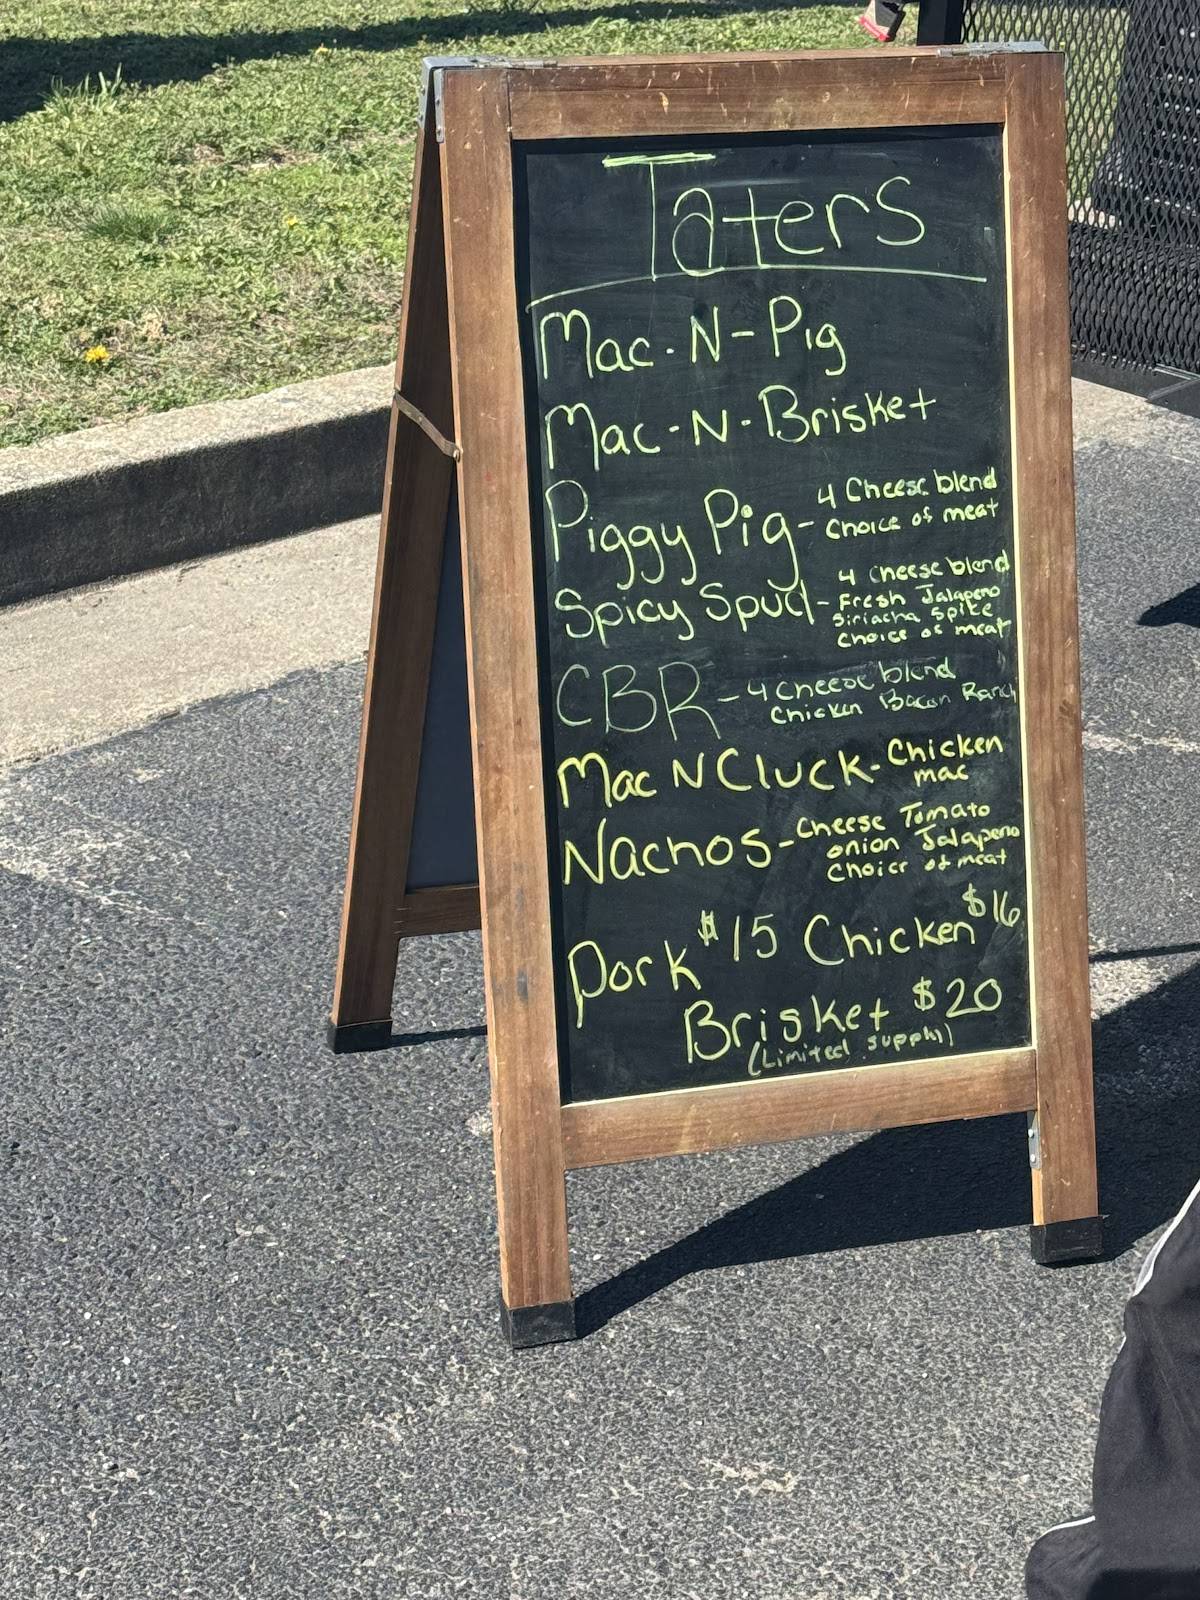 Taters
Mac-N-Pig
Mac-N-Brisket
Piggy Pig - 4 Cheese blend
Choice of meat
Spicy Spud - 4 Cheese blend
Fresh Jalapeno
Siriacha Spike
Choice of meat
CBR - 4 Cheese blend
Chicken Bacon Ranch
Mac N Cluck - Chicken
mac
Nachos - Cheese Tomato
onion Jalapeno
Choice of meat
Pork $15 Chicken $16
Brisket $20
(Limited supply)